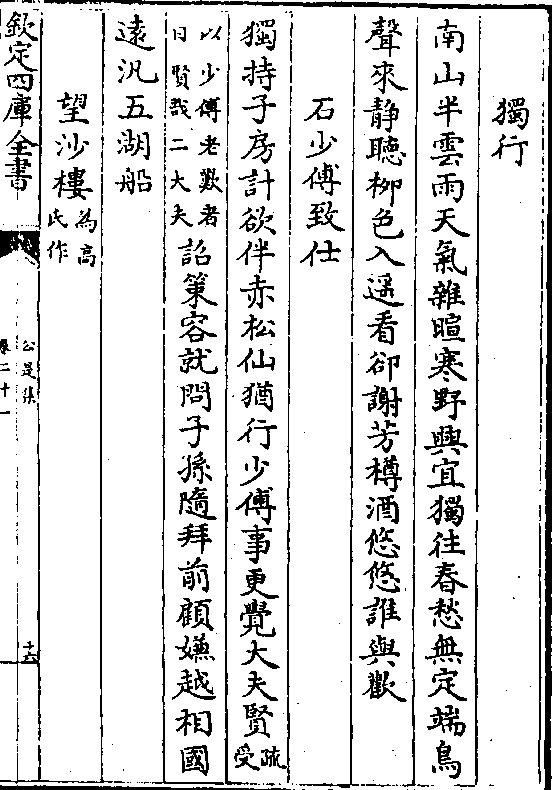 獨行
南山半雲雨天氣雜暄寒野興宜獨往春愁無定端鳥
聲來静聽栁色入遥看卻謝芳樽酒悠悠誰與歡
石少傅致仕
獨持子房計欲伴赤松仙猶行少傅事更覺大夫賢疏受
以少傅老歎者曰賢哉二大夫詔策容就問子孫隨拜前顧嫌越相國
遠汎五湖船
望沙樓為高氏作
欽定四庫全書
公是集
卷二十一
十六